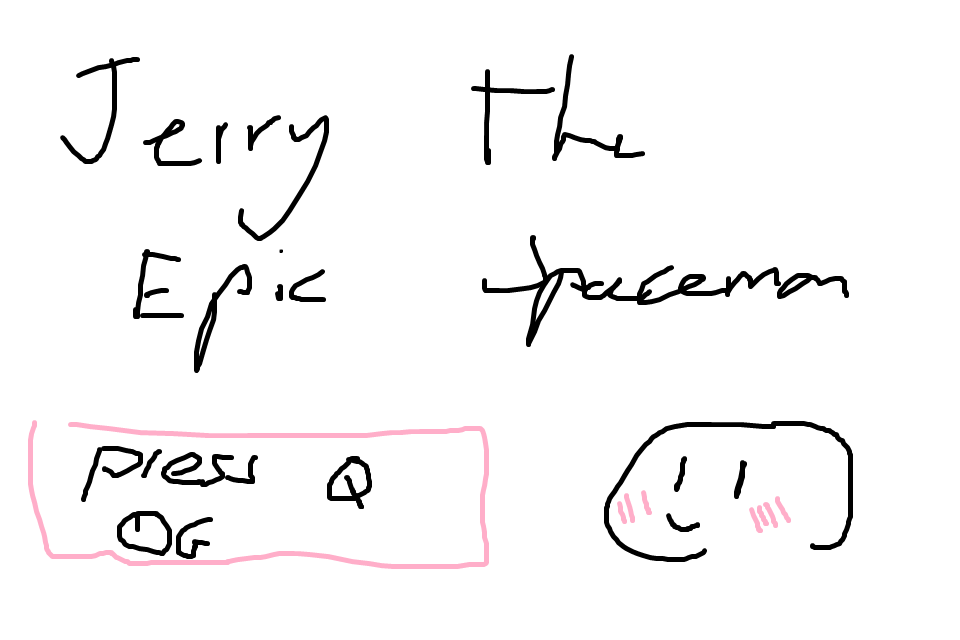 Jerry The
Epic spaceman
press Q
OG